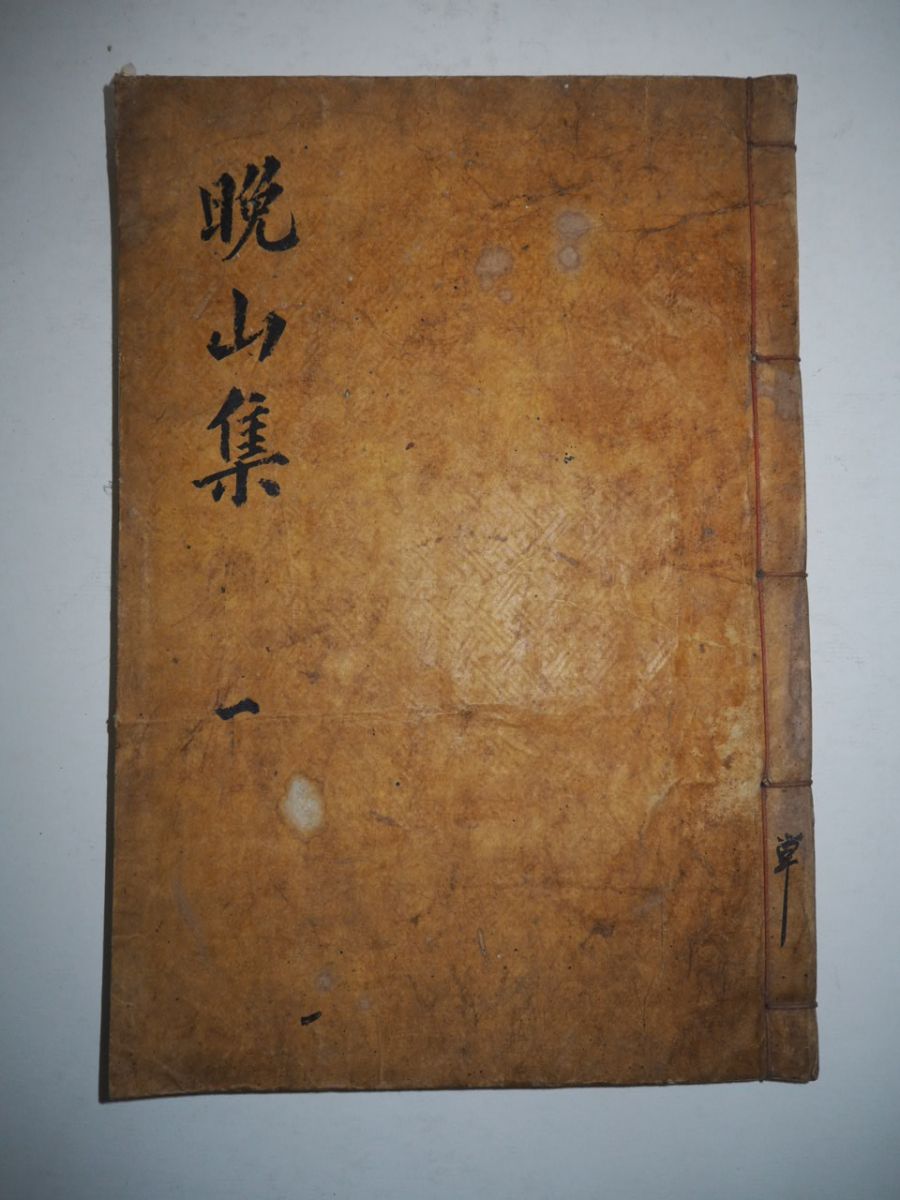 晩山集
一